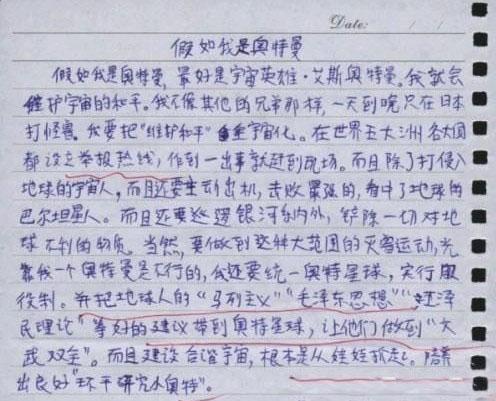 Date: / /
假如我是奥特曼
假如我是奥特曼,最好是宇宙英雄·艾斯奥特曼。我就会
维护宇宙的和平。我不像其他的兄弟那样,一天到晚只在日本
打怪兽,我要把"维护和平"宇宙化。在世界五大洲各大国
都设立举报热线,作到一出事就赶到现场。而且除了打侵入
地球的宇宙人,而且还要主动出机,击败最强的,看中了地球的
巴尔坦星人。而且还要巡逻银河系内外,铲除一切对地
球不利的物质。当然,要做到这种大范围的灭害运动,光
靠我一个奥特曼是不行的,我还要统一奥特星球,实行服
役制。并把地球人的"马列主义""毛泽东思想""江泽
民理论"等好的建议带到奥特星球,让他们做到"文
武双全"。而且建设合谐宇宙,根本是从娃娃抓起。培养
出良好"环干研究小奥特"。